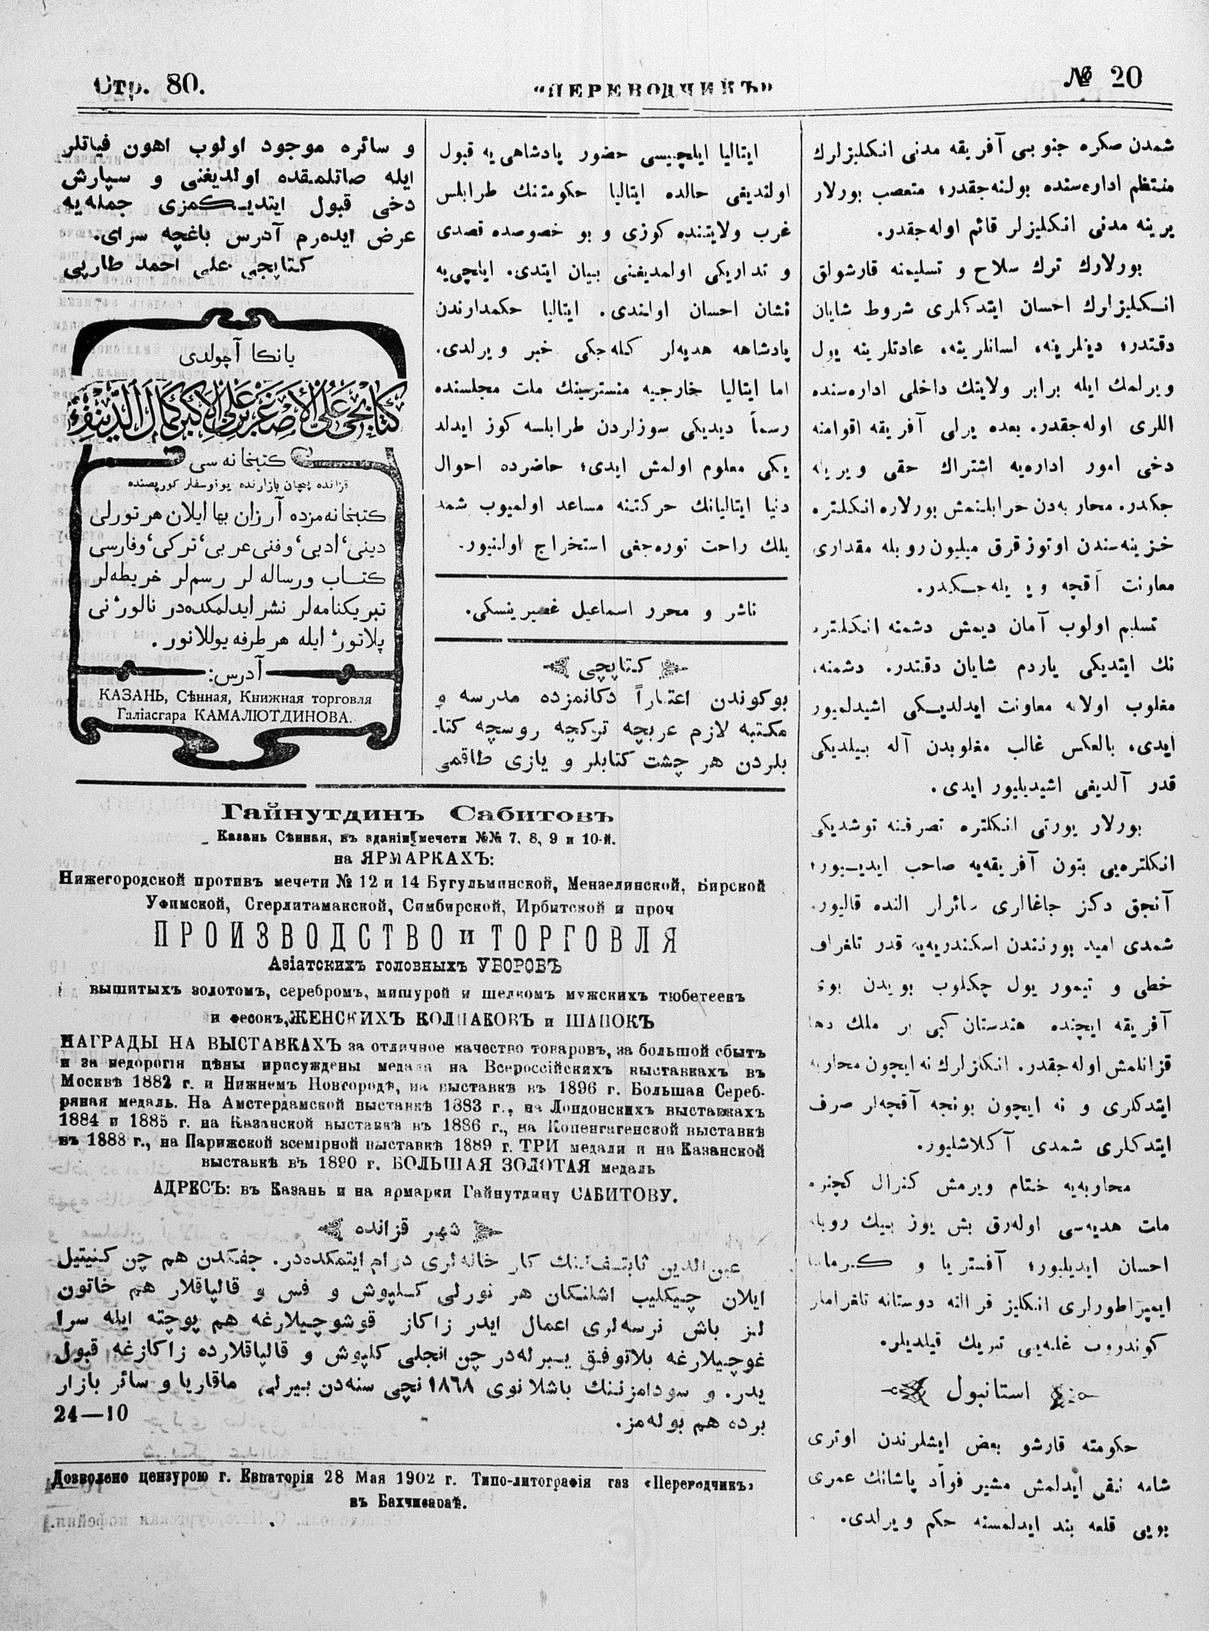 Стр. 80.
"ПЕРЕВОДЧИКЪ"
№ 20
شمدن صكره جنوبی آفريقه مدنی انكليزلرك
منتظم اداره‌سنده بولنه‌جقدر؛ متعصب بورلار
يرينه مدنی انكليزلر قائم اوله‌جقدر.
بورلارك ترك سلاح و تسليمنه قارشولق
انكليزلرك احسان ايتدكلری شروط شايان
دقتدر؛ دينلرينه، لسانلرينه، عادتلرينه يول
ويرلمك ايله برابر ولايتك داخلی اداره‌سنده
اللری اوله‌جقدر. بعده يرلی آفريقه اقوامنه
دخی امور اداره‌يه اشتراك حقی ويريله
جكدر. محاربه‌دن خرابلنمش بورلاره انكلتره
خزينه‌سندن اوتوز قرق ميليون روبله مقداری
معاونت آقچه ويريله‌جكدر.
تسليم اولوب آمان ديمش دشمنه انكلتره
نك ايتديكی ياردم شايان دقتدر. دشمنه،
مغلوب اولانه معاونت ايدلديكی اشيدلميور
ايدی، بالعكس غالب مغلوبدن آله بيلديكی
قدر آلديغی اشيديليور ايدی.
بورلار يورتی انكلتره تصرفنه توشديكی
انكلتره‌يی بتون آفريقه‌يه صاحب ايديیور؛
آنجق دكز جاغالری سائرلر النده قاليور.
شمدی اميد بورنندن اسكندريه‌يه قدر تلغراف
خطی و تيمور يول چكلوب بويدن بويه
آفريقه ايچنده هندستان كبی بر ملك دها
قزانلمش اوله‌جقدر. انكليزلرك نه ايچون محاربه
ايتدكلری و نه ايچون بونجه آقچه‌لر صرف
ايتدكلری شمدی آكلاشليور.
محاربه‌يه ختام ويرمش كنرال كچنره
ملت هديه‌سی اوله‌رق بش يوز بيك روبله
احسان ايديليور؛ آفستريا و كرمانيا
ايمپراطورلری انكليز قرالنه دوستانه تلغرامار
كوندروب غلبه‌يی تبريك قيلديلر.
استانبول
حكومته قارشو بعض ايشلرندن اوتری
شامه نفی ايدلمش مشير فوآد پاشانك عمری
بويی قلعه بند ايدلمسنه حكم ويرلدی.
ايتاليا ايلچيسی حضور پادشاهی‌يه قبول
اولنديغی حالده ايتاليا حكومتنك طرابلس
غرب ولايتنده كوزی و بو خصوصده قصدی
و تداريكی اولمديغنی بيان ايتدی. ايلچی‌يه
نشان احسان اولندی. ايتاليا حكمدارندن
پادشاهه هديه‌لر كله‌جكی خبر ويرلدی.
اما ايتاليا خارجيه منسترينك ملت مجلسنده
رسماً ديديكی سوزلردن طرابلسه كوز ايدلد
يكی معلوم اولمش ايدی؛ حاضرده احوال
دنيا ايتاليانك حركتنه مساعد اولميوب شمد
يلك راحت توره‌جغی استخراج اولنیور.
ناشر و محرر اسماعيل غصپرينسكی.
كتاپچی
بوكوندن اعتباراً دكانمزده مدرسه و
مكتبه لازم عربچه تركچه روسچه كتا
بلردن هر چشت كتابلر و يازی طاقمی
و سائره موجود اولوب اهون فياتلر
ايله صاتلمقده اولديغنی و سپارش
دخی قبول ايتديكمزی جمله‌يه
عرض ايده‌رم آدرس باغچه سرای.
كتاپچی علی احمد طارپی
يانكا آچولدی
كتابچی علی الاصغر بن علی الاكبر كمال الدينف
كتبخانه سی
قزانده پچان بازارنده يونوسفلر كورپصنده
كتبخانه‌مزده آرزان بها ايلان هر تورلی
دينی، ادبی، وفنی عربی، تركی، وفارسی
كتاب ورساله لر رسم‌لر خريطه‌لر
تبريكنامه‌لر نشر ايدلمكده‌در نالوژ نی
پلاتوژ ايله هر طرفه يوللانور.
آدرس:
КАЗАНЬ, Сѣнная, Книжная торговля
Галіасгара КАМАЛЮТДИНОВА.
Гайнутдинъ Сабитовъ
Казань Сѣнная, въ зданіи мечети №№ 7, 8, 9 и 10-й.
на ЯРМАРКАХЪ:
Нижегородской противъ мечети № 12 и 14 Бугульминской, Мензелинской, Бирской
Уфимской, Стерлитамакской, Симбирской, Ирбитской и проч
ПРОИЗВОДСТВО И ТОРГОВЛЯ
Азіатскихъ головныхъ УБОРОВЪ
вышитыхъ золотомъ, серебромъ, мишурой и шелкомъ мужскихъ тюбетеевъ
и фесокъ, ЖЕНСКИХЪ КОЛПАКОВЪ и ШАПОКЪ
НАГРАДЫ НА ВЫСТАВКАХЪ за отличное качество товаровъ, за большой сбытъ
и за недорогія цѣны присуждены медали на Всероссійскихъ выставкахъ въ
Москвѣ 1882 г. и Нижнемъ Новгородѣ, на выставкѣ въ 1896 г. Большая Сереб-
ряная медаль. На Амстердамской выставкѣ 1883 г., на Лондонскихъ выставкахъ
1884 и 1885 г. на Казанской выставкѣ въ 1886 г., на Копенгагенской выставкѣ
въ 1888 г., на Парижской всемірной выставкѣ 1889 г. ТРИ медали и на Казанской
выставкѣ въ 1890 г. БОЛЬШАЯ ЗОЛОТАЯ медаль
АДРЕСЪ: въ Казань и на ярмарки Гайнутдину САБИТОВУ.
شهر قزانده
عين‌الدين ثابتفننك كار خانه‌لری دوام ايتمكده‌در. جفكدن هم چن كنيتيل
ايلان چيكليب اشلنكان هر نورلی كلپوش و فس و قالپاقلار هم خاتون
لنز باش نرسه‌لری اعمال ايدر زاكاز قوشوچيلارغه هم پوچته ايله سرا
غوچيلارغه بلاتوفق يبرله‌در چن انجلی كلپوش و قالپاقلارده زاكازغه قبول
يدر. و سودامزننك باشلانوی ١٨٦٨ نچی سنه‌دن بيرلی ماقاريا و سائر بازار
برده هم بوله‌مز.
24—10
Дозволено цензурою г. Евпаторія 28 Мая 1902 г. Типо-литографія газ «Переводчикъ»
въ Бахчисараѣ.